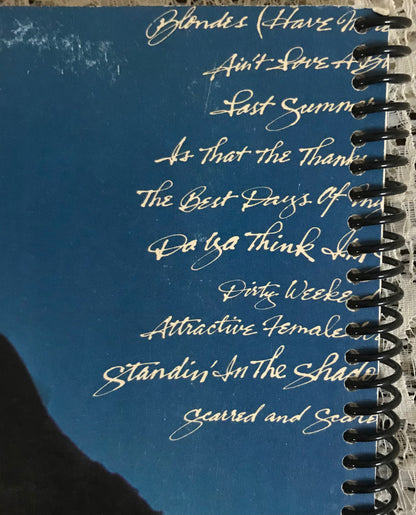 Blondes (Have M
Ain't Love A B
Last Summer
Is That The Thank
The Best Days Of My
Da Ya Think I'm
Dirty Weeke
Attractive Female
Standin' In The Shado
Scarred and Scare